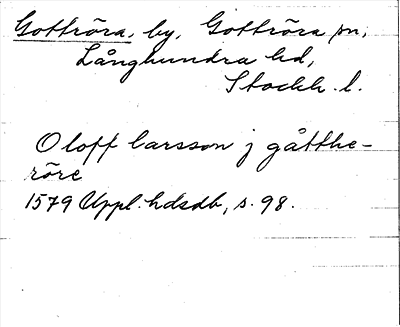 Gottröra, by, Gottröra sn,
Långhundra hd,
Stockh. l.
Oloff larsson j gåtthe-
röre
1579 Uppl. hdsdb, s. 98.